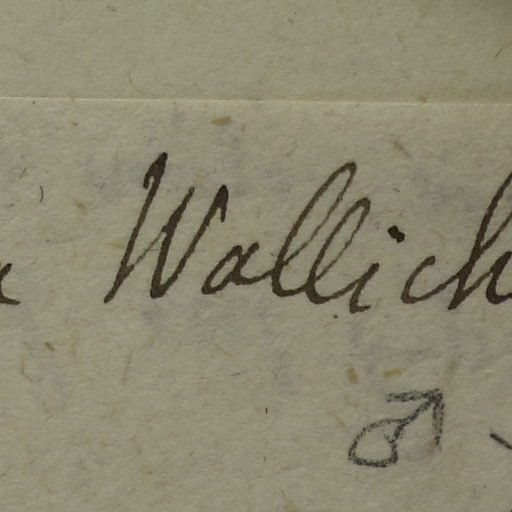 Wallich
♂